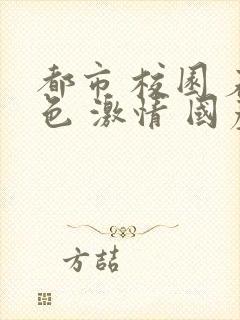 都市 校园
色 激情 国
方喆